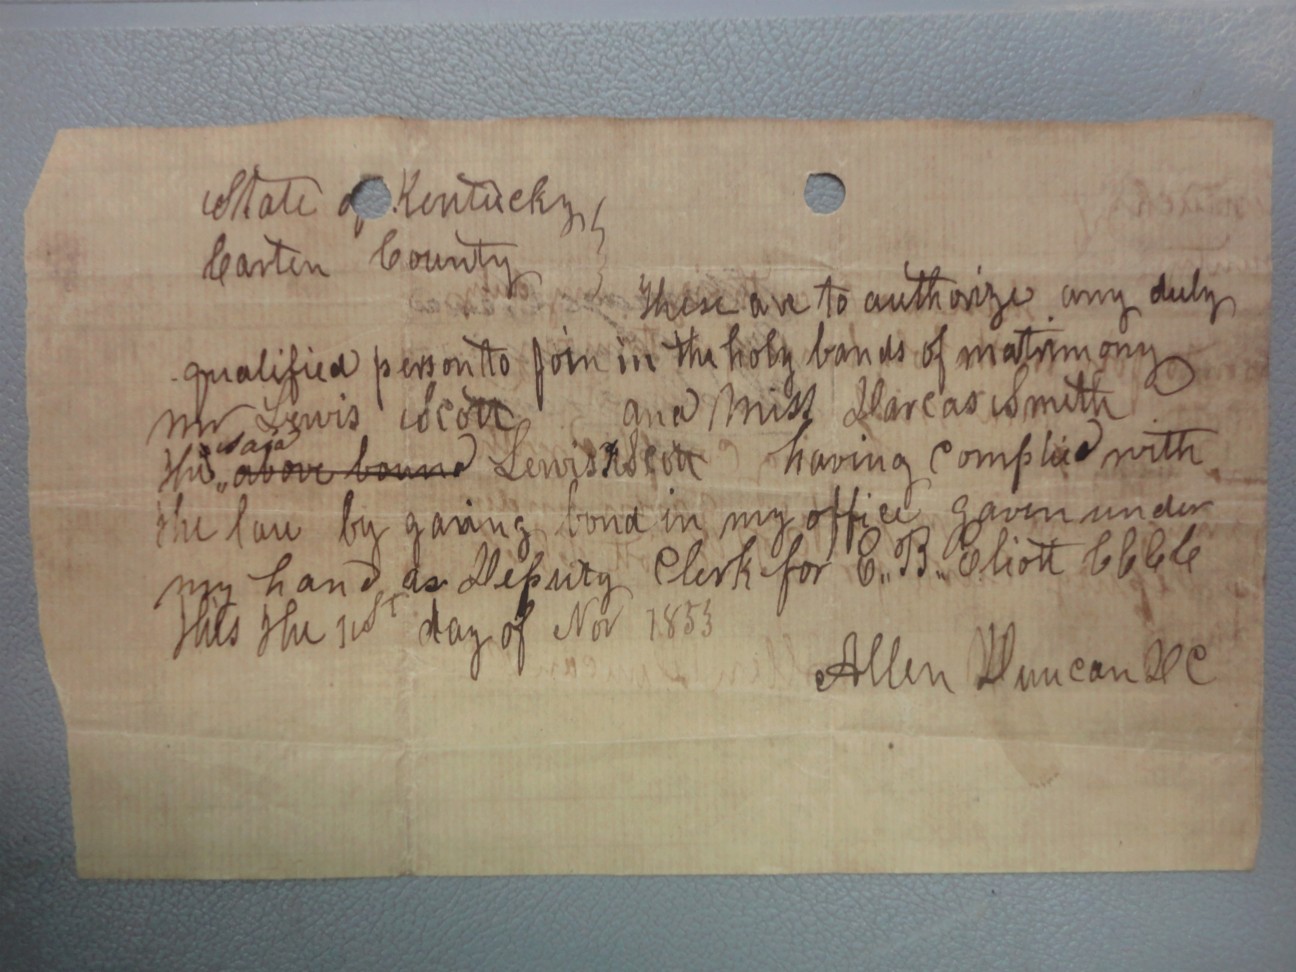 State of Kentucky
Carter County
These are to authorize any duly
qualified person to join in the holy bands of matrimony
mr Lewis Scott and Miss Darcas Smith
said
the above bound Lewis Scott having complied with
the law by gaving bond in my office gaven under
my hand as Deputy Clerk for E. B. Eliott CCCC
this the day of Nov 1853
Allen Duncan DC